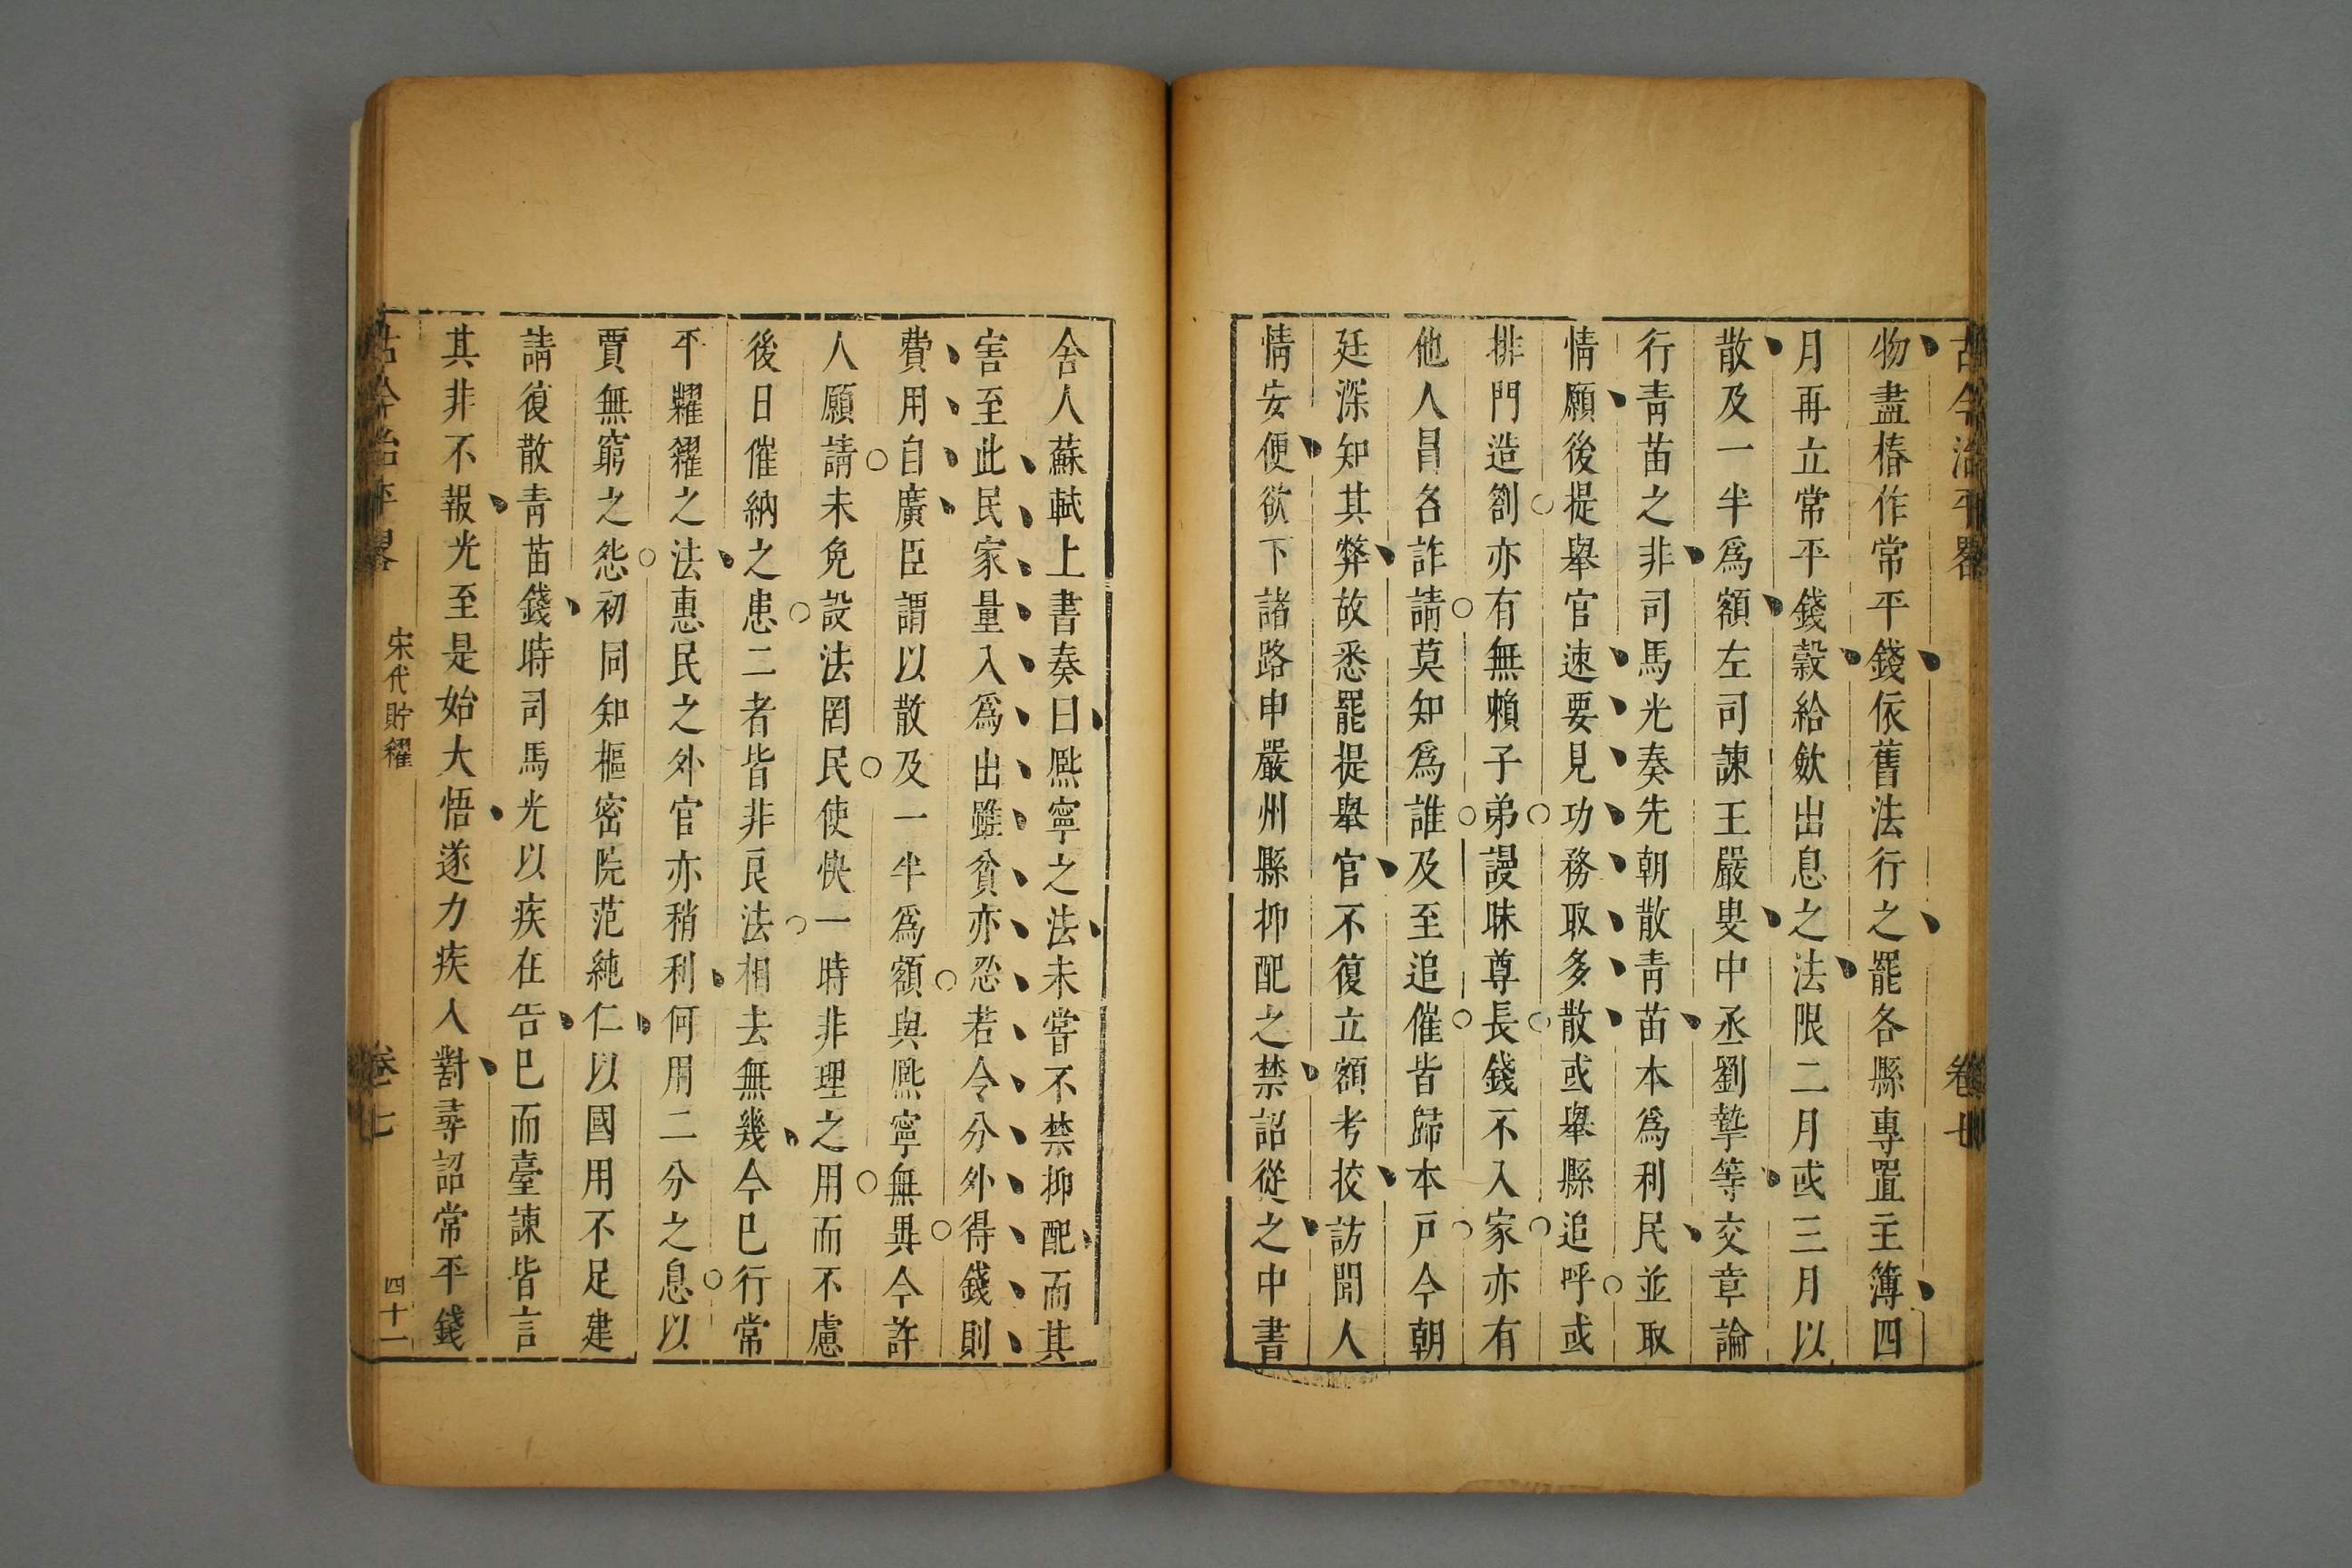 古今治平畧 卷七
物盡樁作常平錢依舊法行之罷各縣專置主簿四
月再立常平錢穀給斂出息之法限二月或三月以
散及一半爲額左司諫王嚴叟中丞劉摯等交章論
行青苗之非司馬光奏先朝散青苗本爲利民並取
情願後提舉官速要見功務取多散或舉縣追呼或
排門造劄亦有無賴子弟謾昧尊長錢不入家亦有
他人冒名詐請莫知爲誰及至追催皆歸本戶今朝
廷深知其弊故悉罷提舉官不復立額考挍訪聞人
情安便欲下諸路申嚴州縣抑配之禁詔從之中書
舍人蘇軾上書奏曰熈寧之法未嘗不禁抑配而其
害至此民家量入爲出雖貧亦忍若令分外得錢則
費用自廣臣謂以散及一半爲額與熈寧無異今許
人願請未免設法罔民使快一時非理之用而不慮
後日催納之患二者皆非良法相去無幾今已行常
平糶糴之法惠民之外官亦稍利何用二分之息以
賈無窮之怨初同知樞密院范純仁以國用不足建
請復散青苗錢時司馬光以疾在告已而臺諫皆言
其非不報光至是始大悟遂力疾入對尋詔常平錢
古今治平畧 宋代貯糴 卷七 四十一